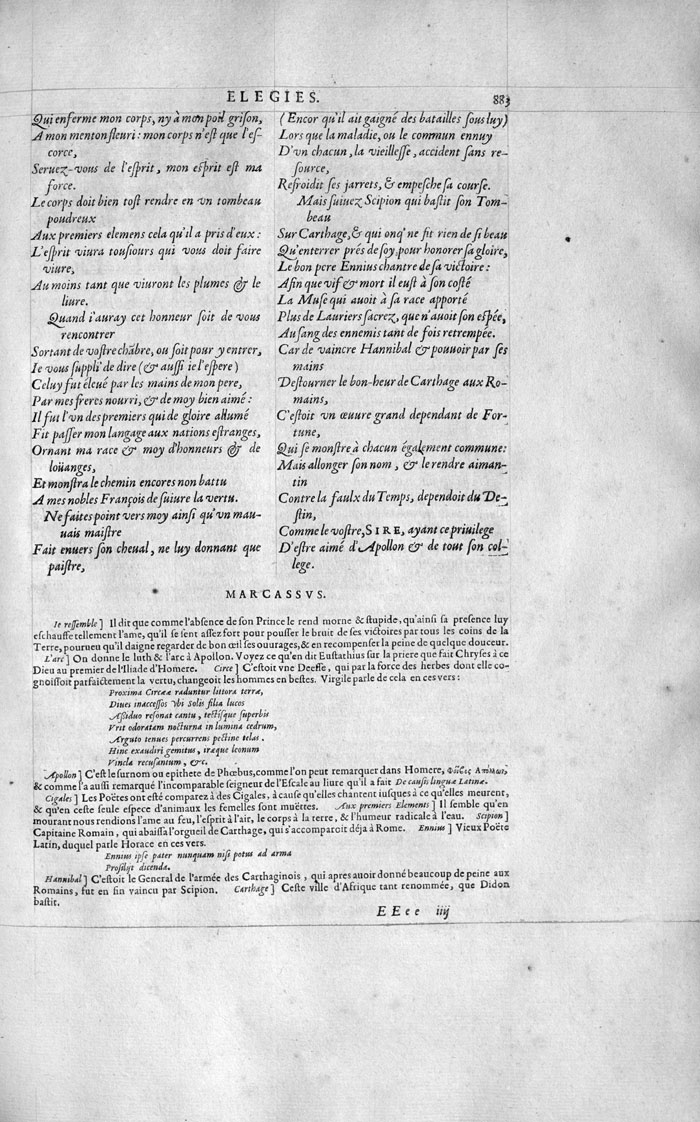 ELEGIES. 883
Qui enferme mon corps, ny à mon poil grison,
A mon menton fleuri: mon corps n'est que l'es-
corce,
Seruez-vous de l'esprit, mon esprit est ma
force.
Le corps doit bien tost rendre en vn tombeau
poudreux
Aux premiers elemens cela qu'il a pris d'eux:
L'esprit viura tousiours qui vous doit faire
viure,
Au moins tant que viuront les plumes & le
liure.
Quand i'auray cet honneur soit de vous
rencontrer
Sortant de vostre chãbre, ou soit pour y entrer,
Ie vous suppli' de dire (& aussi ie l'espere)
Celuy fut éleué par les mains de mon pere,
Par mes freres nourri, & de moy bien aimé:
Il fut l'vn des premiers qui de gloire allumé
Fit passer mon langage aux nations estranges,
Ornant ma race & moy d'honneurs & de
loüanges,
Et monstra le chemin encores non battu
A mes nobles François de suiure la vertu.
Ne faites point vers moy ainsi qu'vn mau-
uais maistre
Fait enuers son cheual, ne luy donnant que
paistre,
(Encor qu'il ait gaigné des batailles sous luy)
Lors que la maladie, ou le commun ennuy
D'vn chacun, la vieillesse, accident sans re-
source,
Refroidit ses jarrets, & empesche sa course.
Mais suiuez Scipion qui bastit son Tom-
beau
Sur Carthage, & qui onq' ne fit rien de si beau
Qu'enterrer prés de soy, pour honorer sa gloire,
Le bon pere Ennius chantre de sa victoire:
Afin que vif & mort il eust à son costé
La Muse qui auoit à sa race apporté
Plus de Lauriers sacrez, que n'auoit son espée,
Au sang des ennemis tant de fois retrempée.
Car de vaincre Hannibal & pouuoir par ses
mains
Destourner le bon-heur de Carthage aux Ro-
mains,
C'estoit vn œuure grand dependant de For-
tune,
Qui se monstre à chacun également commune:
Mais allonger son nom, & le rendre aiman-
tin
Contre la faulx du Temps, dependoit du De-
stin,
Comme le vostre, SIRE, ayant ce priuilege
D'estre aimé d'Apollon & de tout son col-
lege.
MARCASSVS.
Ie ressemble] Il dit que comme l'absence de son Prince le rend morne & stupide, qu'ainsi sa presence luy
eschauffe tellement l'ame, qu'il se sent assez fort pour pousser le bruit de ses victoires par tous les coins de la
Terre, pourueu qu'il daigne regarder de bon œil ses ouurages, & en recompenser la peine de quelque douceur.
L'arc] On donne le luth & l'arc à Apollon. Voyez ce qu'en dit Eustathius sur la priere que fait Chryses à ce
Dieu au premier de l'Iliade d'Homere. Circe] C'estoit vne Deesse, qui par la force des herbes dont elle co-
gnoissoit parfaictement la vertu, changeoit les hommes en bestes. Virgile parle de cela en ces vers:
Proxima Circææ raduntur littora terræ,
Diues inaccessos vbi Solis filia lucos
Assiduo resonat cantu, tectisque superbis
Vrit odoratam nocturna in lumina cedrum,
Arguto tenues percurrens pectine telas.
Hinc exaudiri gemitus, iræque leonum
Vincla recusantum, &c.
Apollon] C'est le surnom ou epithete de Phœbus, comme l'on peut remarquer dans Homere, Φοῖβος Απόλλων,
& comme l'a aussi remarqué l'incomparable seigneur de l'Escale au liure qu'il a fait De causis linguæ Latinæ.
Cigales] Les Poëtes ont esté comparez à des Cigales, à cause qu'elles chantent iusques à ce qu'elles meurent,
& qu'en ceste seule espece d'animaux les femelles sont muëttes. Aux premiers Elements] Il semble qu'en
mourant nous rendions l'ame au feu, l'esprit à l'air, le corps à la terre, & l'humeur radicale à l'eau. Scipion]
Capitaine Romain, qui abaissa l'orgueil de Carthage, qui s'accomparoit déja à Rome. Ennius] Vieux Poëte
Latin, duquel parle Horace en ces vers.
Ennius ipse pater nunquam nisi potus ad arma
Prosilijt dicenda.
Hannibal] C'estoit le General de l'armée des Carthaginois, qui apres auoir donné beaucoup de peine aux
Romains, fut en fin vaincu par Scipion. Carthage] Ceste ville d'Afrique tant renommée, que Didon
bastit.
EEee iiij